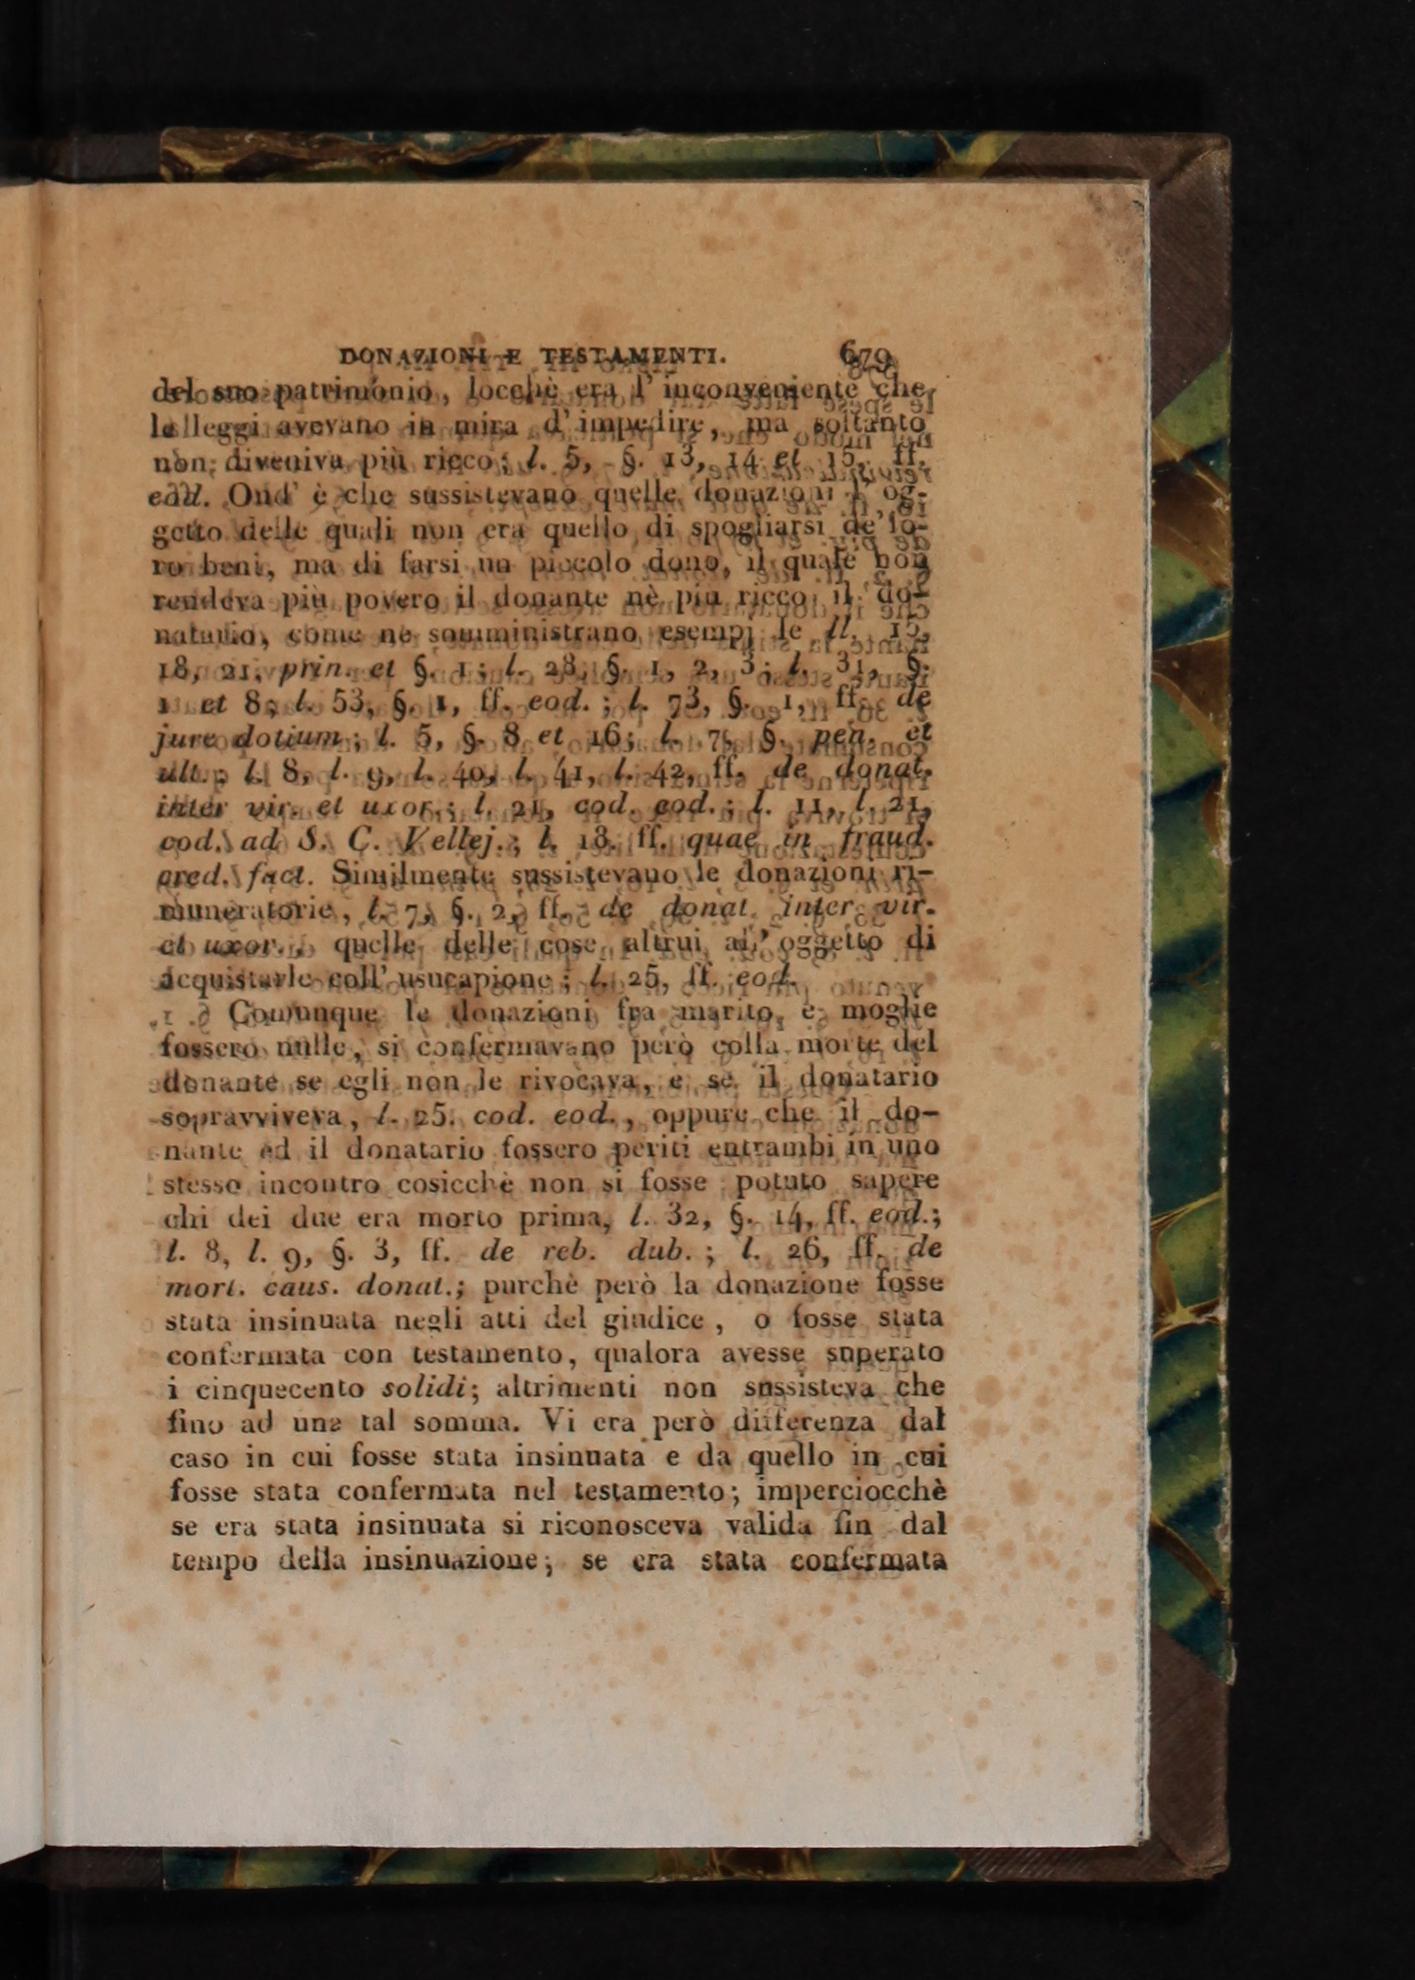 DONAZIONI E TESTAMENTI. 679
del suo patrimonio, locchè era l' inconveniente che
le leggi avevano in mira d' impedire, ma soltanto
non diveniva più ricco; l. 5, §. 13, 14 et 15, ff.
eod. Ond' è che sussistevano quelle donazioni l' og-
getto delle quali non era quello di spogliarsi de' lo-
ro beni, ma di farsi un piccolo dono, il quale non
rendeva più povero il donante nè più ricco il do-
natario, come ne somministrano esempj le ll. 15,
18, 21, prin. et §. 1; l. 28, §. 1, 2, 3; l. 31, §.
1 et 8; l. 53, §. 1, ff. eod.; l. 73, §. 1, ff. de
jure dotium; l. 5, §. 8 et 16; l. 7, §. pen. et
ult.; l. 8, l. 9, l. 40, l. 41, l. 42, ff. de donat.
inter vir. et uxor.; l. 21, cod. eod.; l. 11, l. 21,
cod. ad S. C. Vellej.; l. 18. ff. quae in fraud.
cred. fact. Similmente sussistevano le donazioni ri-
muneratorie, l. 7, §. 2, ff. de donat. inter vir.
et uxor., quelle delle cose altrui all' oggetto di
acquistarle coll' usucapione; l. 25, ff. eod.
Comunque le donazioni fra marito e moglie
fossero nulle, si confermavano però colla morte del
donante se egli non le rivocava, e se il donatario
sopravviveva, l. 25. cod. eod., oppure che il do-
nante ed il donatario fossero periti entrambi in uno
stesso incontro cosicchè non si fosse potuto sapere
chi dei due era morto prima, l. 32, §. 14, ff. eod.;
l. 8, l. 9, §. 3, ff. de reb. dub.; l. 26, ff. de
mort. caus. donat.; purchè però la donazione fosse
stata insinuata negli atti del giudice, o fosse stata
confermata con testamento, qualora avesse superato
i cinquecento solidi; altrimenti non sussisteva che
fino ad una tal somma. Vi era però differenza dal
caso in cui fosse stata insinuata e da quello in cui
fosse stata confermata nel testamento; imperciocchè
se era stata insinuata si riconosceva valida fin dal
tempo della insinuazione; se era stata confermata